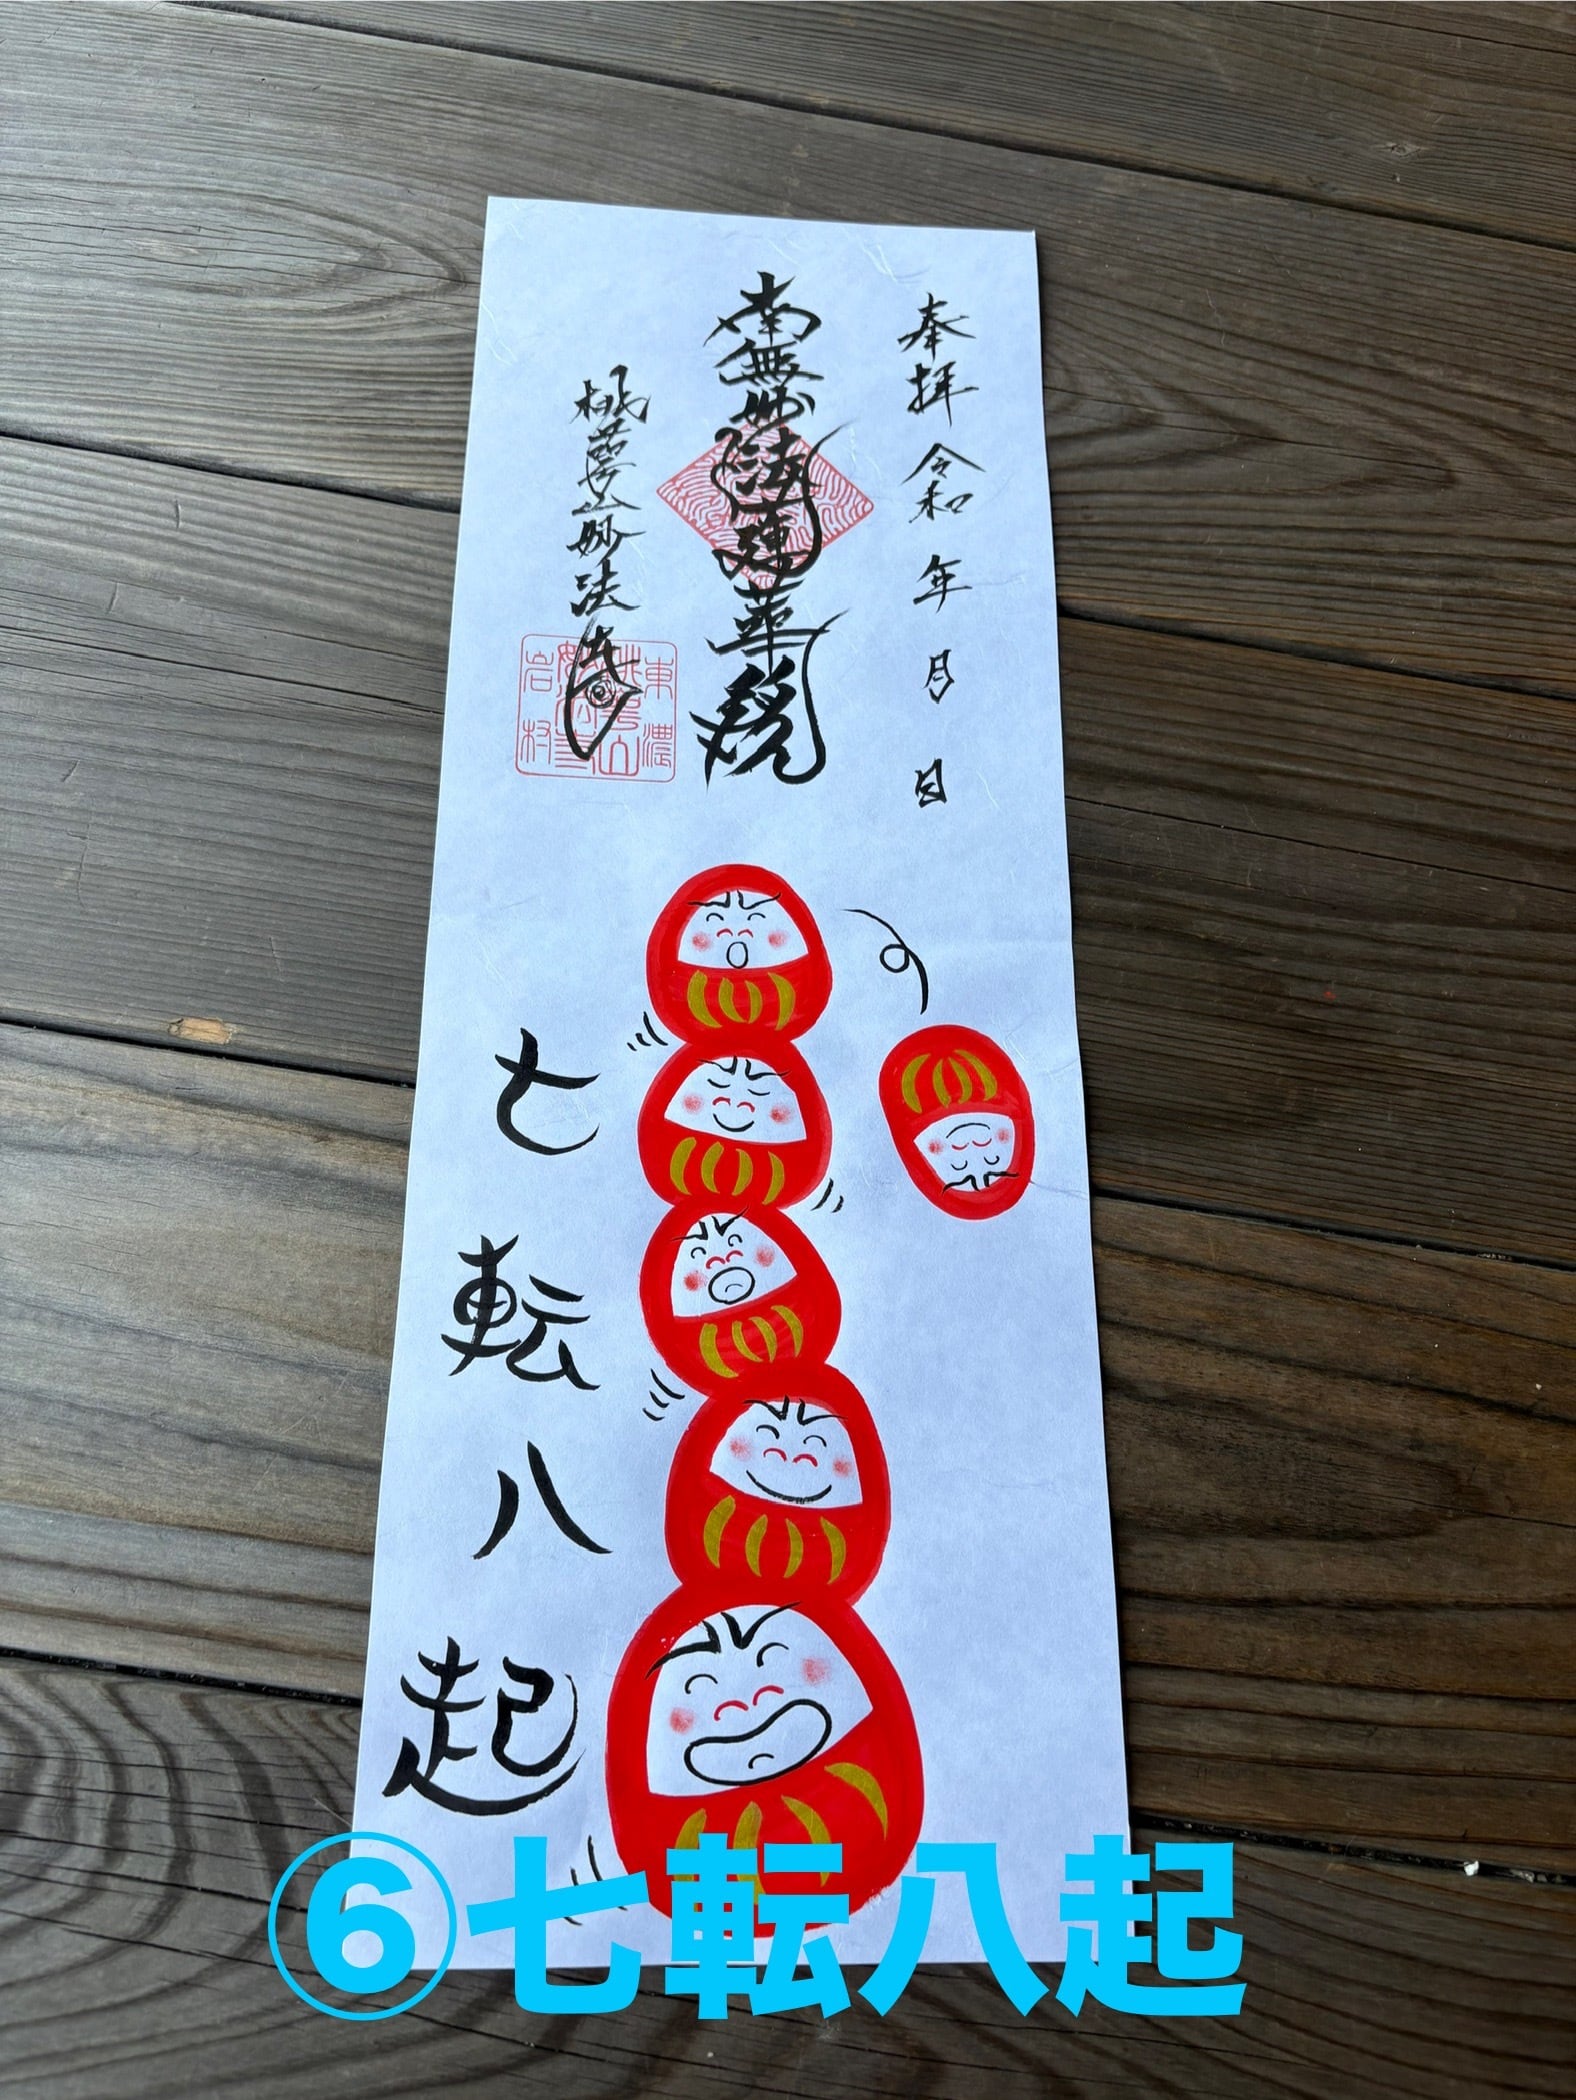 奉拝 令和 年 月 日
南無妙法蓮華経
桃夢山妙法寺
東濃
桃夢山
妙法寺
岩村
七転八起
⑥七転八起